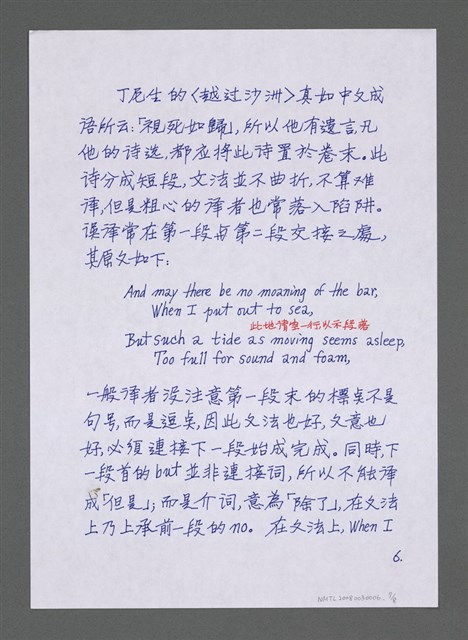 丁尼生的〈越过沙洲〉真如中文成
语所云:「視死如歸」,所以他有遺言,凡
他的诗选,都应将此诗置於卷末。此
诗分成短段,文法並不曲折,不算难
译,但是粗心的译者也常落入陷阱。
误译常在第一段与第二段交接之處,
其原文如下:
And may there be no moaning of the bar,
When I put out to sea,
此地请空一行以示段落
But such a tide as moving seems asleep,
Too full for sound and foam,
一般译者没注意第一段末的標点不是
句号,而是逗点,因此文法也好,文意也
好,必須連接下一段始成完成。同時,下
一段首的but並非連接词,所以不能译
成「但是」;而是介词,意為「除了」,在文法
上乃上承前一段的no。在文法上,When I
6.